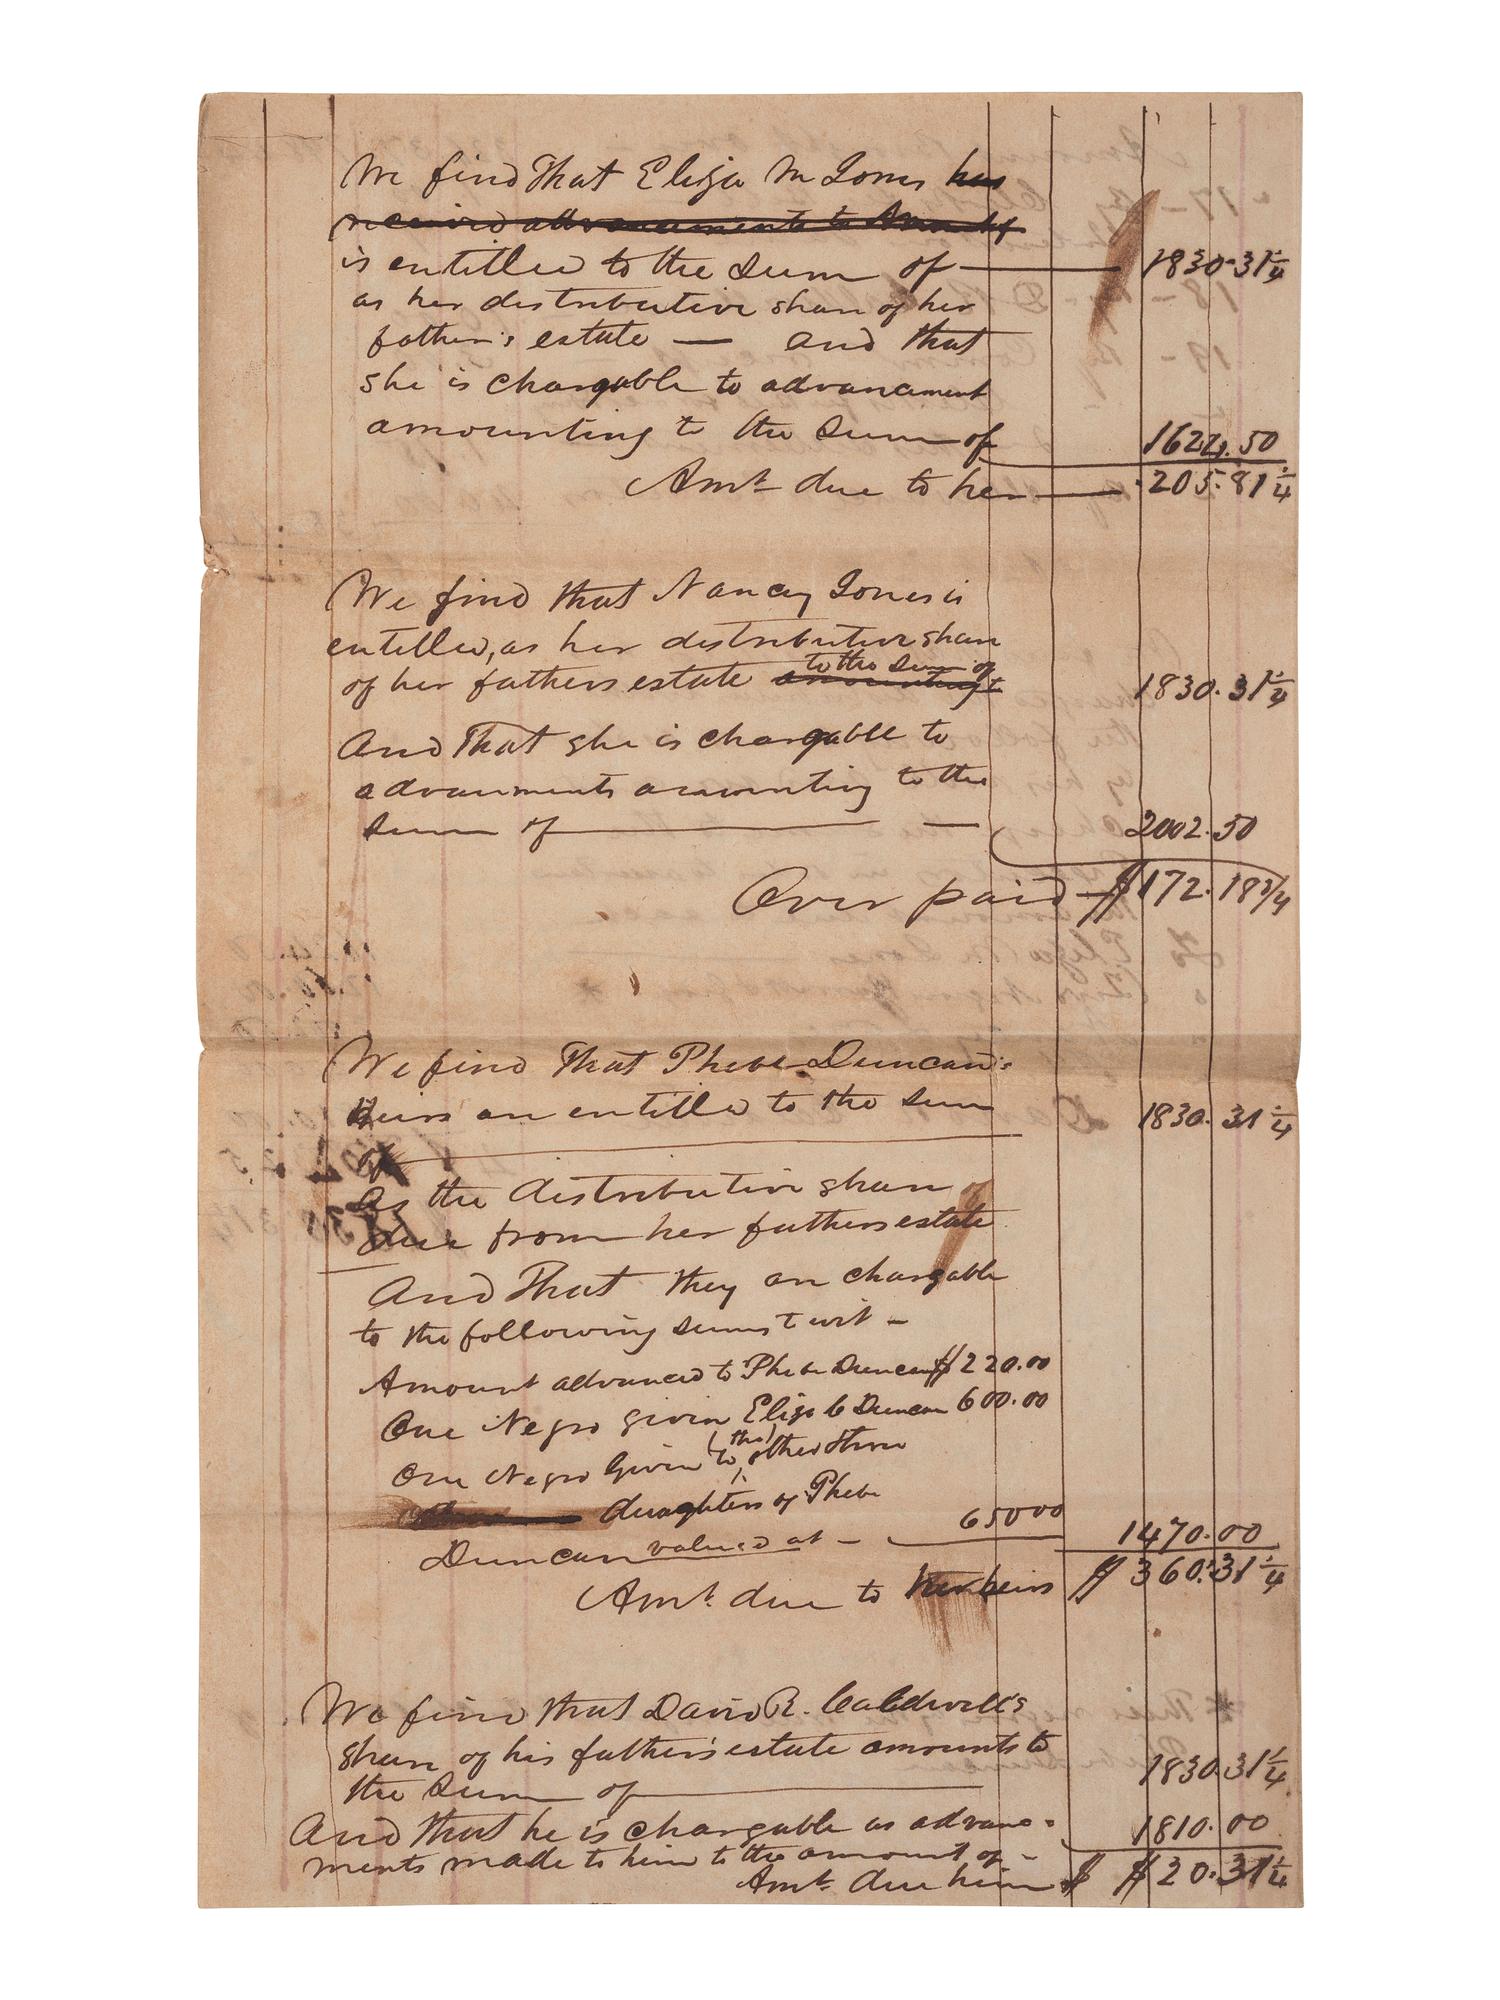 We find That Eliza M Jones has
received advancements to Amount of
is entitled to the Sum of — 1830.31 1/4
as her distributive share of her
father's estate — and that
she is chargable to advancement
amounting to the Sum of 1624.50
Amt due to her — 205.81 1/4
We find that Nancy Jones is
entitled, as her distributive share
of her fathers estate amounting to to the Sum of 1830.31 1/4
And That she is chargable to
advancments amounting to the
Sum of — 2002.50
Over paid — $172.18 3/4
We find That Phebe Duncan's
heirs are entitled to the Sum 1830.31 1/4
of
As the distributive share of
due from her fathers estate
And That they are chargable
to the following sums to wit —
Amount advanced to Phebe Duncan $220.00
One Negro given Eliza C Duncan 600.00
One Negro Given to (the) other three
daughters of Phebe
Duncan valued at — 65000 1470.00
Amt. due to her heirs $360.31 1/4
We find that David R. Caldwell's
share of his father's estate amounts to
the Sum of — 1830.31 1/4
And that he is chargable as advance-
ments made to him to the amount of — 1810.00
Amt. due him $ $20.31 1/4